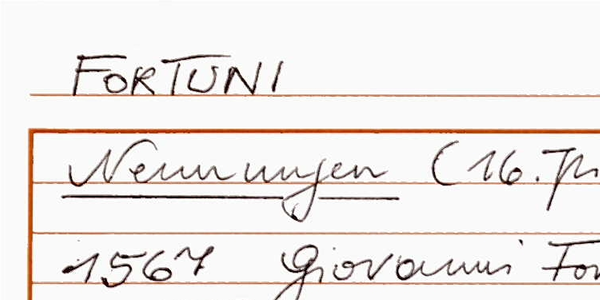 FORTUNI
Nennungen (16. Jh
1567 Giovanni For